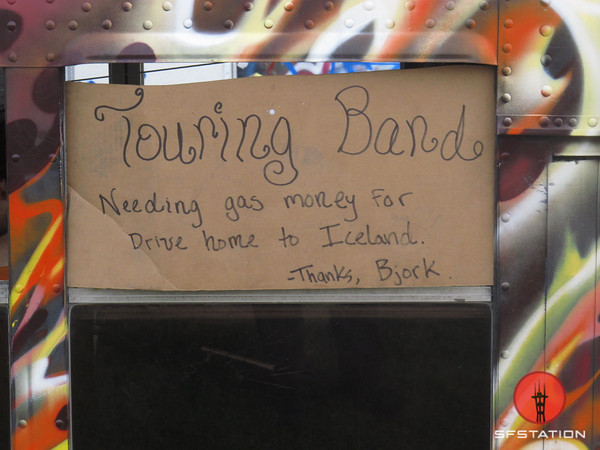 Touring Band
Needing gas money For
Drive home to Iceland.
-Thanks, Bjork.
SFSTATION